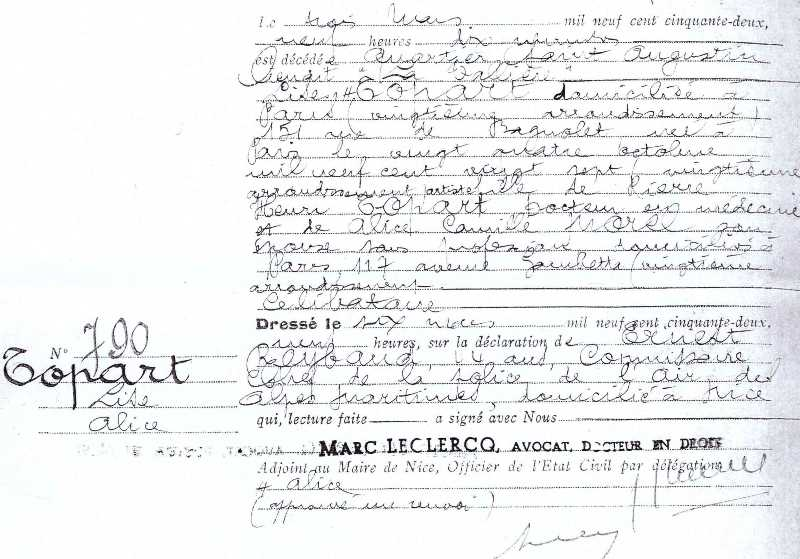 Le trois Mars mil neuf cent cinquante-deux,
neuf heures dix minutes
est décédée Quartier Saint Augustin
"La
Lise + TOPART domiciliée à
Paris (vingtième arrondissement)
151 rue de Bagnolet née à
Paris le vingt quatre octobre
mil neuf cent vingt sept, vingtième
arrondissement artiste fille de Pierre
Henri TOPART, Docteur en médecine
et de Alice Camille MOREL son
épouse sans profession, domiciliés à
Paris, 117 avenue Gambetta (vingtième
arrondissement.
Célibataire
Dressé le six mars mil neuf cent cinquante-deux,
heures, sur la déclaration de Ernest
ans, Commissaire
de la Police de l'Air des
Alpes Maritimes, domicilié à Nice
qui, lecture faite a signé avec Nous
MARC LECLERCQ, AVOCAT, DOCTEUR EN DROIT
Adjoint au Maire de Nice, Officier de l'Etat Civil par délégation
+ Alice
(approuvé un renvoi)
N° 790
Topart
Lise
Alice